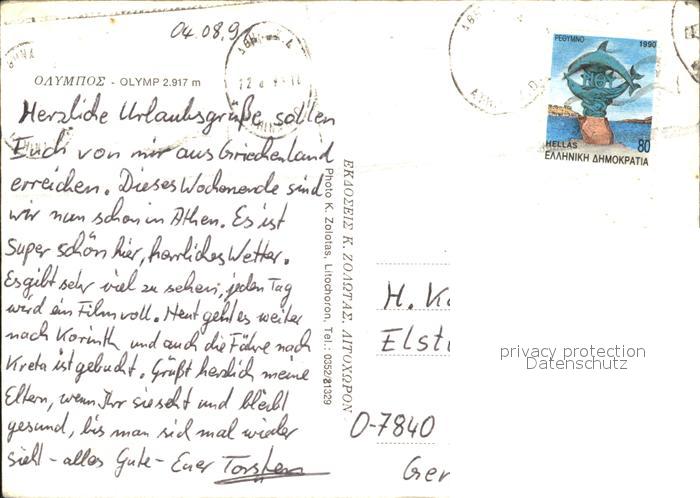 04.08.91
ΟΛΥΜΠΟΣ - OLYMP 2.917 m
Herzliche Urlaubsgrüße sollen
Euch von mir aus Griechenland
erreichen. Dieses Wochenende sind
wir nun schon in Athen. Es ist
super schön hier, herrliches Wetter.
Es gibt sehr viel zu sehen, jeden Tag
wird ein Film voll. Heut geht es weiter
nach Korinth und auch die Fähre nach
Kreta ist gebucht. Grüßt herzlich meine
Eltern, wenn Ihr sie seht und bleibt
gesund, bis man sich mal wieder
sieht - alles Gute - Euer Torsten
ΕΚΔΟΣΕΙΣ Κ. ΖΟΛΩΤΑΣ, ΛΙΤΟΧΩΡΟΝ
Photo K. Zolotas, Litochoron, Tel.: 0352/81329
ΡΕΘΥΜΝΟ 1990
HELLAS 80
ΕΛΛΗΝΙΚΗ ΔΗΜΟΚΡΑΤΙΑ
H. K
Elst
O-7840
Ger
privacy protection
Datenschutz